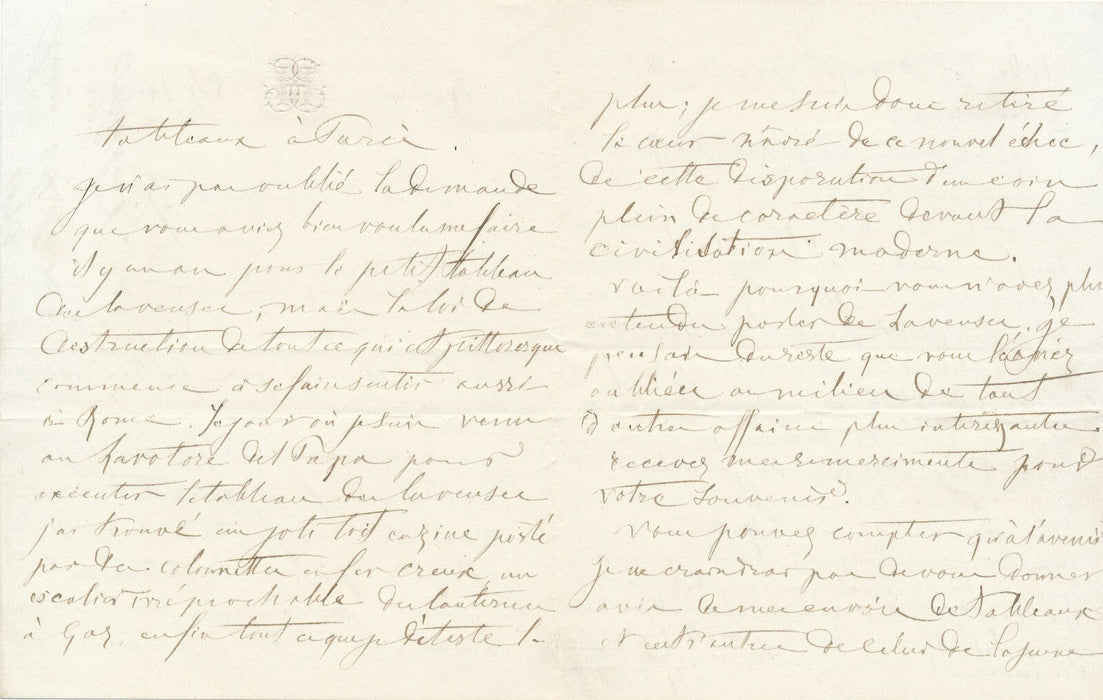 tableaux à Paris.
je n'ai pas oublié la demande
que vous aviez bien voulu me faire
il y a un an pour le petit tableau
des laveuses, mais la loi de
destruction de tout ce qui est pittoresque
commence à se faire sentir aussi
à Rome. Le jour où je suis venu
au Lavatore del Papa pour
exécuter le tableau des laveuses
j'ai trouvé un joli toit en zinc porté
par des colonnettes en fer creux, un
escalier irréprochable des lanternes
à Gaz, enfin tout ce que je déteste le
plus; je me suis donc retiré
le cœur navré de ce nouvel échec,
de cette disparution d'un coin
plein de caractère devant la
civilisation moderne.
Voilà pourquoi vous n'avez plus
entendu parler de Laveuses. je
pensais du reste que vous l'aviez
oubliée au milieu de tant
d'autres affaires plus intéressantes.
recevez mes remerciments pour
votre souvenir.
Vous pouvez compter qu'à l'avenir
je ne craindrai pas de vous donner
avis de mes envois de tableaux
et entr'autres de celui de la jeune